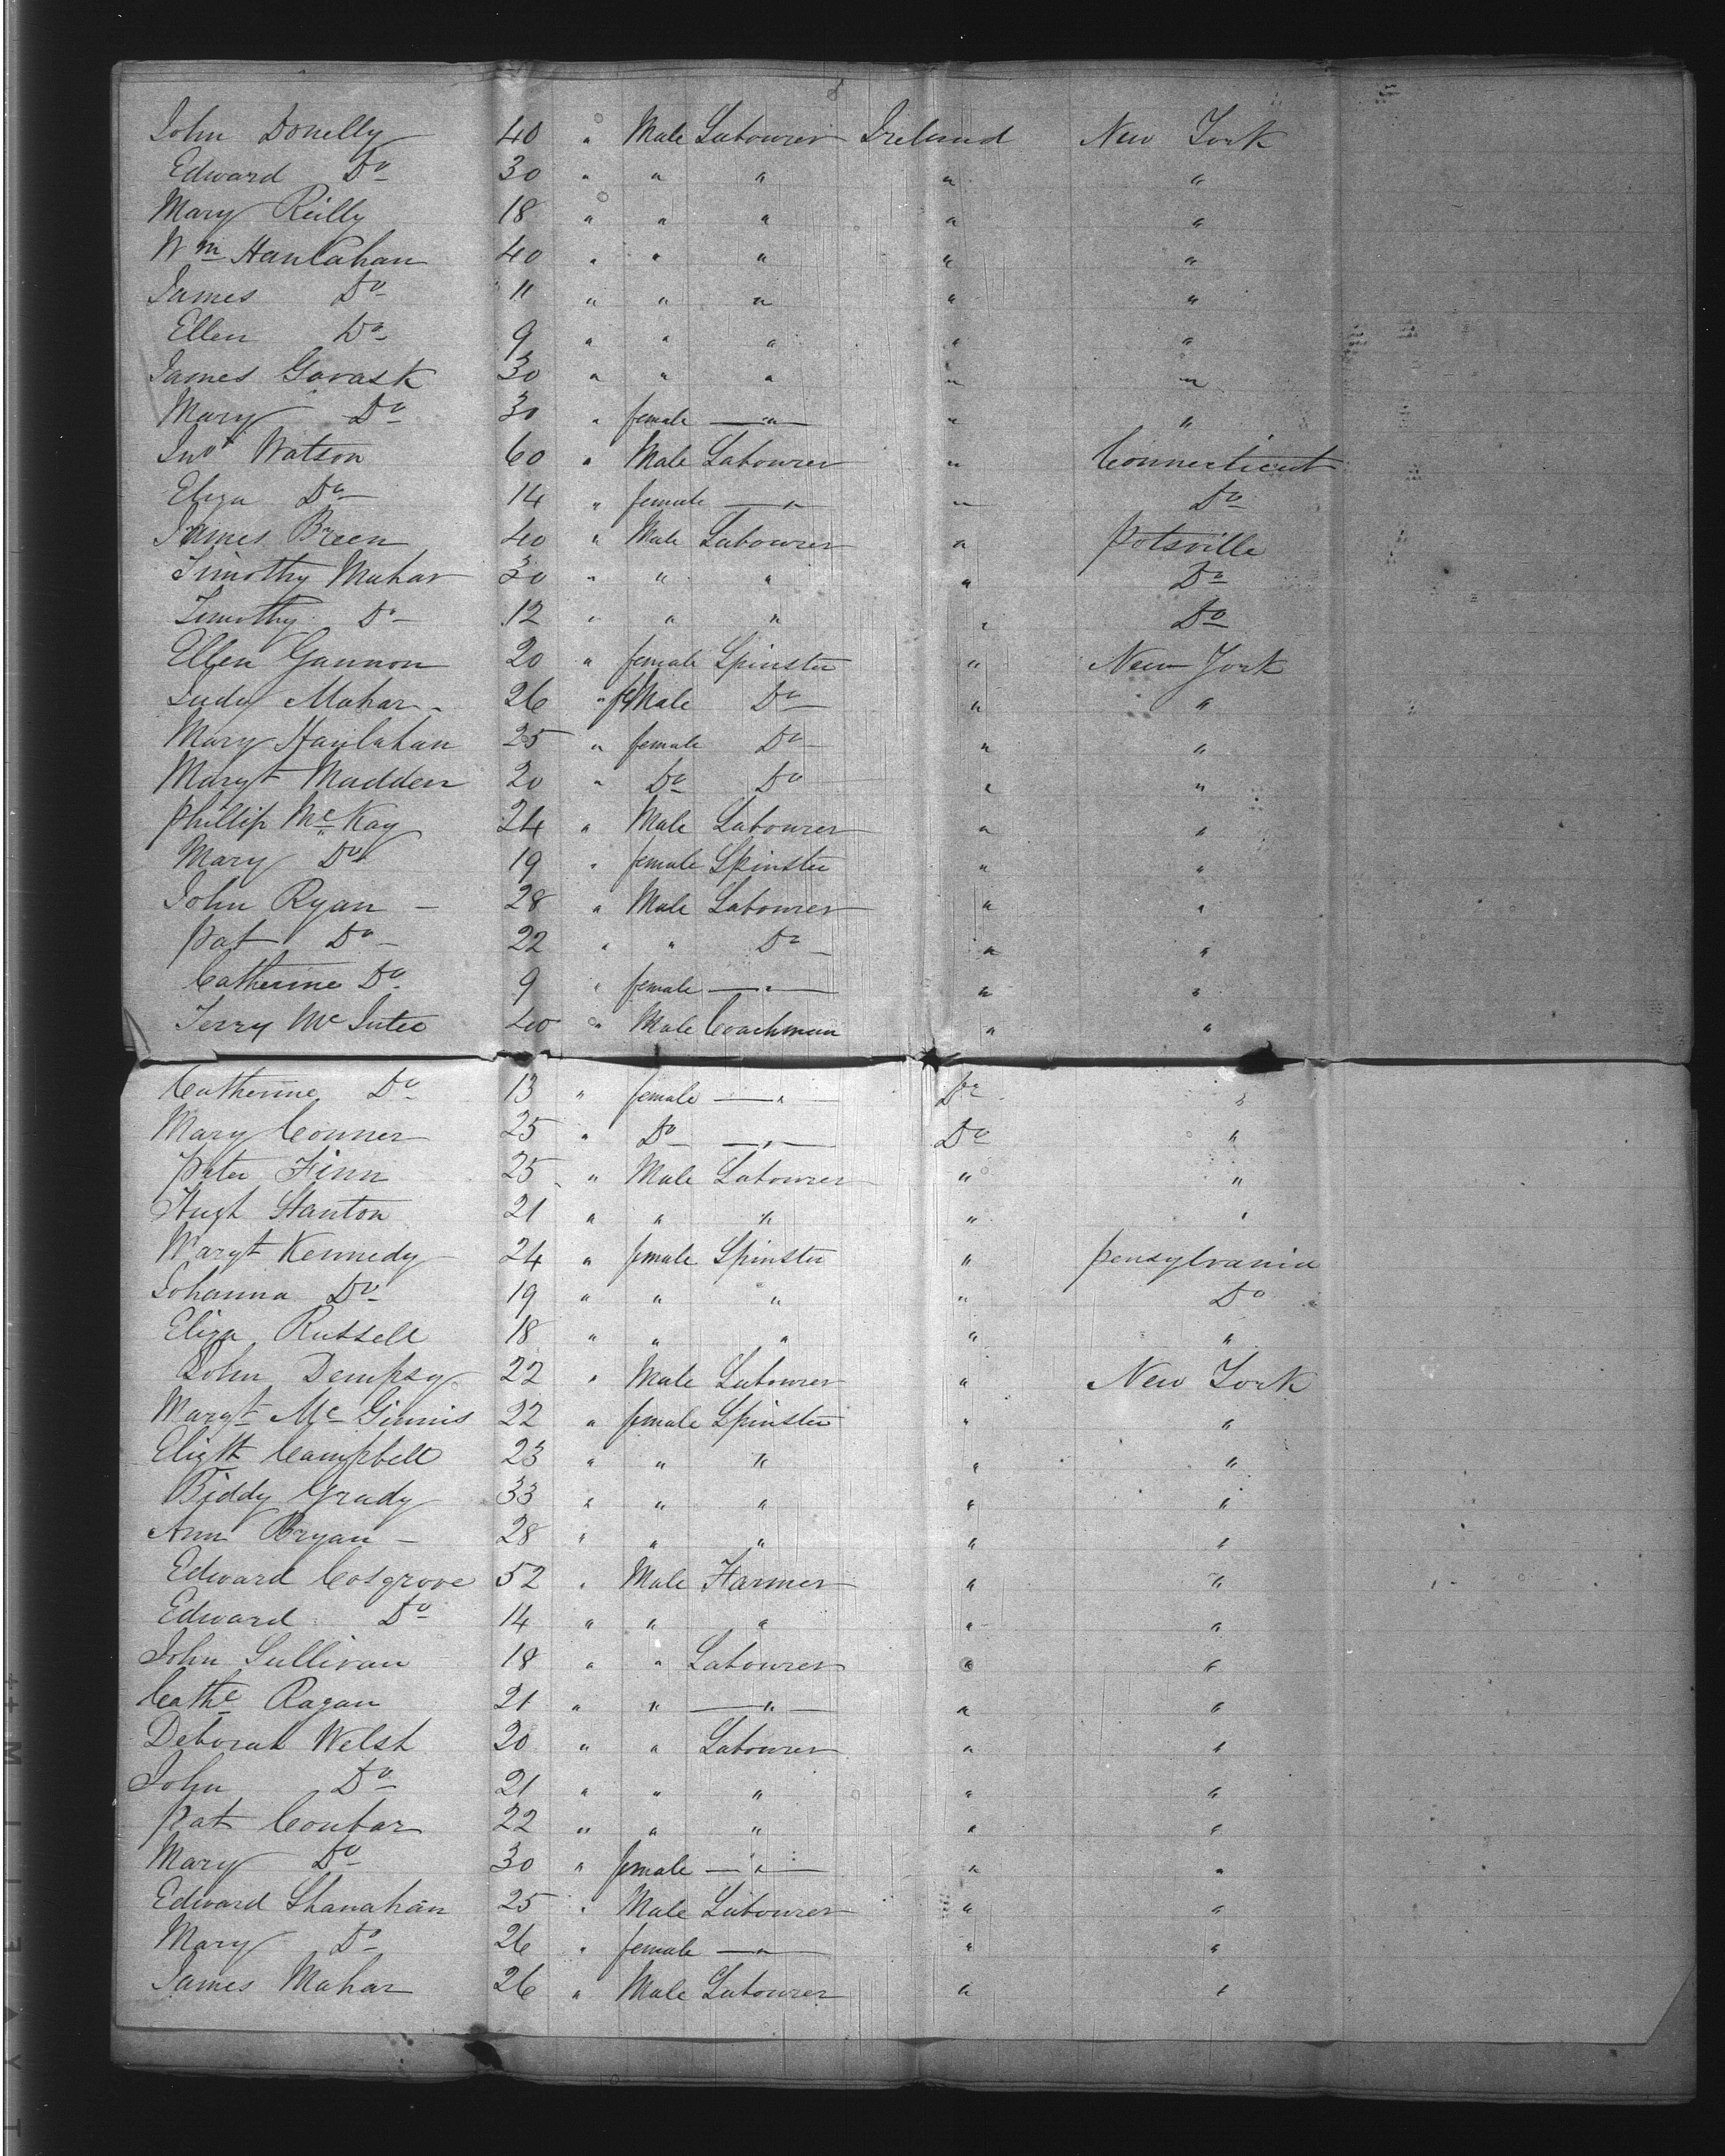 John Donelly 40 " Male Labourer Ireland New York
Edward Do 30 " " " " "
Mary Reilly 18 " " " " "
Wm Hanlahan 40 " " " " "
James Do 11 " " " " "
Ellen Do 9 " " " " "
James Gavask 30 " " " " "
Mary Do 30 " female — " — " "
Jno Watson 60 " Male Labourer " Connecticut
Eliza Do 14 " female — " — " Do
James Breen 40 " Male Labourer " Potsville
Timothy Mahar 30 " " " " Do
Timothy Do 12 " " " " Do
Ellen Gannon 20 " female Spinster " New York
Judy Mahar 26 " feMale Do " "
Mary Hanlahan 25 " female Do " "
Margt Madden 20 " Do Do " "
Phillip McKay 24 " Male Labourer " "
Mary Do 19 " female Spinster " "
John Ryan — 28 " Male Labourer " "
Pat Do 22 " " Do " "
Catherine Do 9 " female — " — " "
Terry Mc 40 " Male Coachman " "
Catherine Do 13 " female — " — Do "
Mary Conner 25 " Do — " — Do "
Peter Finn 25 " Male Labourer " "
Hugh Stanton 21 " " " " "
Margt Kennedy 24 " female Spinster " Pensylvania
Johanna Do 19 " " " " Do
Eliza Russell 18 " " " " "
John Dempsy 22 " Male Labourer " New York
Margt Mc Ginnis 22 " female Spinster " "
Elizth Campbell 23 " " " " "
Biddy Grady 33 " " " " "
Ann Bryan — 28 " " " " "
Edward Cosgrove 52 " Male Farmer " "
Edward Do 14 " " " " "
John Sullivan 18 " " Labourer " "
Cathe Ragan 21 " " — " — " "
Deborah Welsh 20 " " Labourer " "
John Do 21 " " " " "
Pat Conbar 22 " " " " "
Mary Do 30 " female — " — " "
Edward Shanahan 25 " Male Labourer " "
Mary Do 26 " female — " — " "
James Mahar 26 " Male Labourer " "